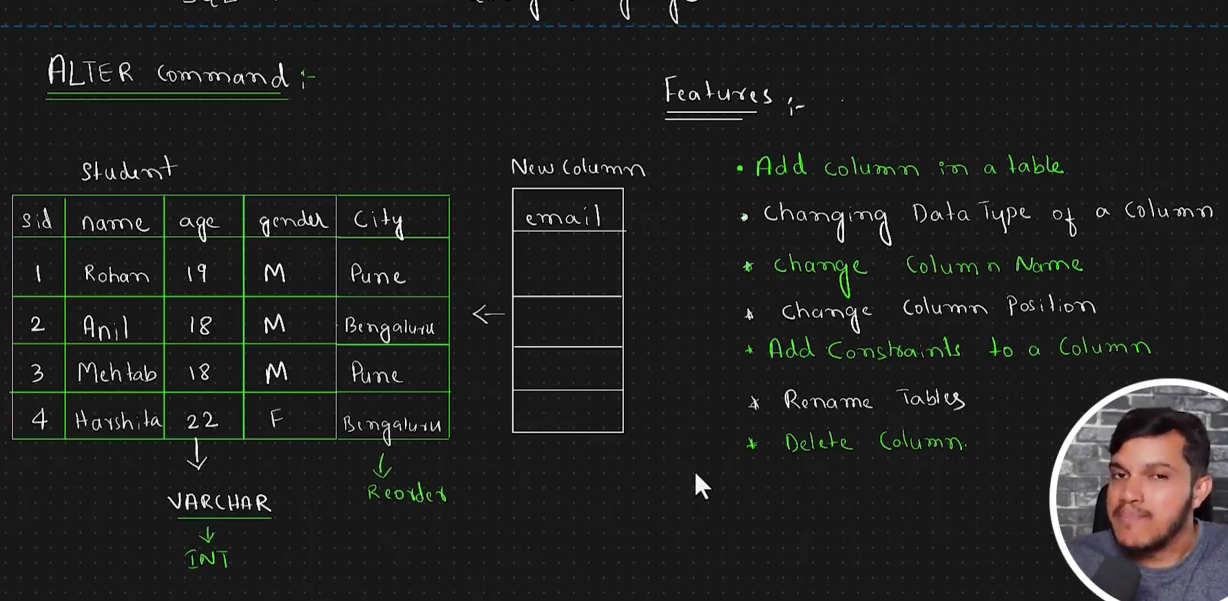 ALTER Command :-
Features :-
Student
sid name age gender City
1 Rohan 19 M Pune
2 Anil 18 M Bengaluru
3 Mehtab 18 M Pune
4 Harshita 22 F Bengaluru
VARCHAR
INT
Reorder
New Column
email
• Add column in a table
• Changing Data Type of a Column
* Change Column Name
* Change Column Position
* Add Constraints to a Column
* Rename Tables
* Delete Column.